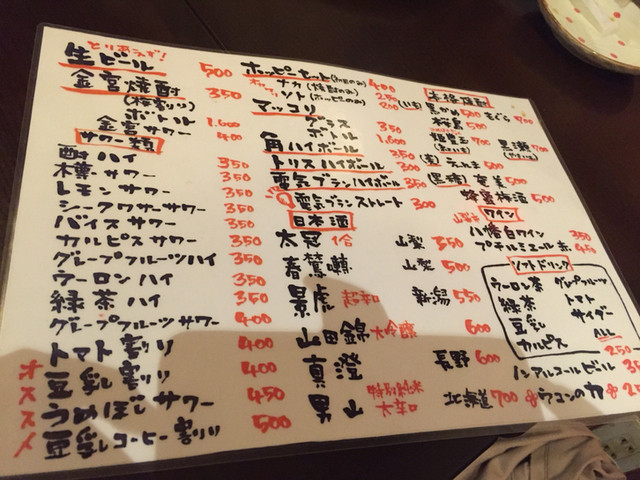 とりあえず!
生ビール 500
金宮焼酎
(梅割り) 350
ボトル 1,600
金宮サワー 400
サワー類
酎ハイ 350
樽サワー 350
レモンサワー 350
シークワサーサワー 350
バイスサワー 350
カルピスサワー 350
グレープフルーツハイ 350
ウーロンハイ 350
緑茶ハイ 350
グレープフルーツサワー 400
トマト割り 400
オススメ
豆乳割り 400
うめぼしサワー 450
豆乳コーヒー割り 500
ホッピーセット 400
ナカ (焼酎のみ) 250
ソト (ホッピのみ) 200
マッコリ
グラス 350
ボトル 1,600
角ハイボール 350
トリスハイボール 300
電気ブランハイボール 350
電気ブランストレート 300
日本酒
太冠 1合 山梨 350
春鶯囀 山梨 500
景虎 超辛口 新潟 550
山田錦 大吟醸 600
真澄 長野 600
男山 特別純米 大辛口 北海道 700
本格焼酎
黒かめ 500
黒瀬 700
奄美 500
蜂蜜梅酒 500
ワイン
八幡白ワイン 350
プチテルミエール 赤 450
ソフトドリンク
ウーロン茶 グレープフルーツ
緑茶 トマト
豆乳 サイダー
カルピス ALL 250
ノンアルコールビール
ウコンの力